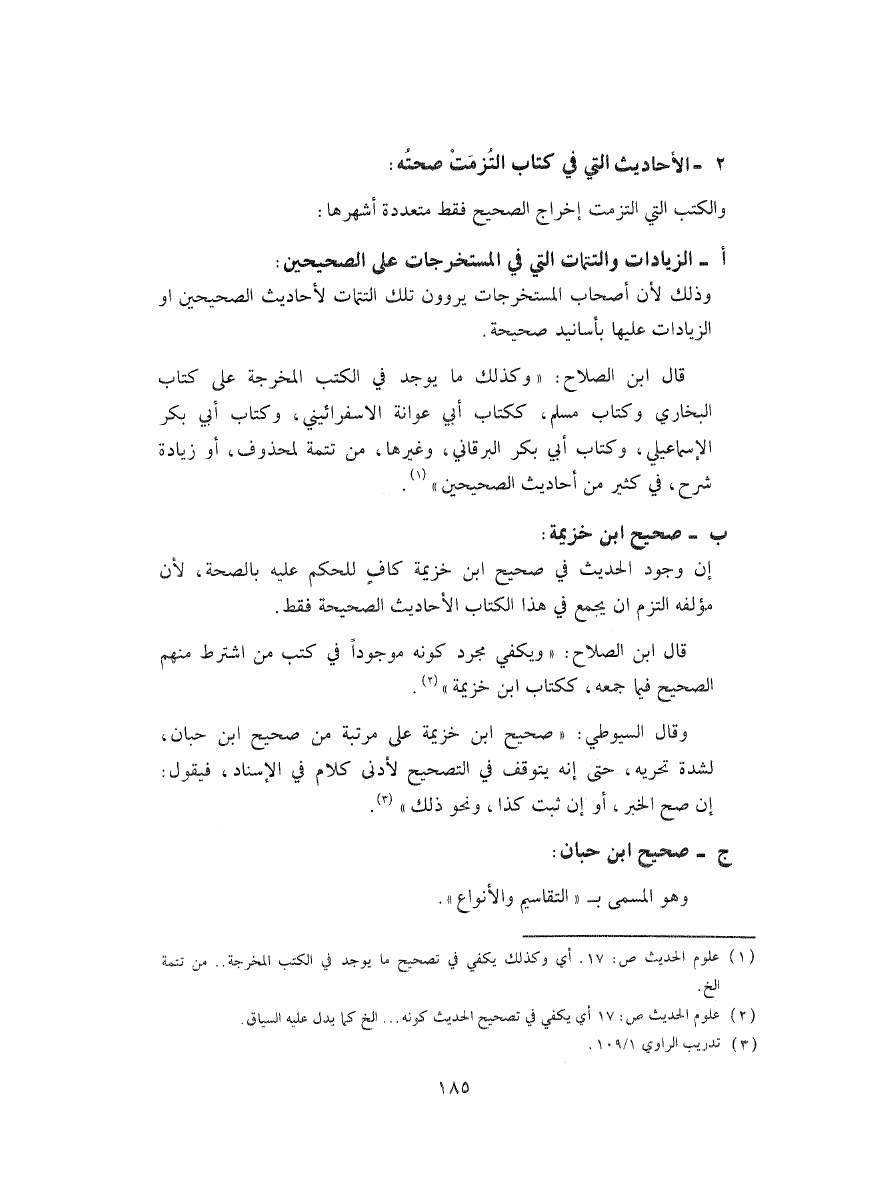 ٢ - الأحاديث التي في كتاب التُزمَتْ صحتُه :
والكتب التي التزمت إخراج الصحيح فقط متعددة أشهرها :
أ - الزيادات والتتمات التي في المستخرجات على الصحيحين :
وذلك لأن أصحاب المستخرجات يروون تلك التتمات لأحاديث الصحيحين او
الزيادات عليها بأسانيد صحيحة .
قال ابن الصلاح : « وكذلك ما يوجد في الكتب المخرجة على كتاب
البخاري وكتاب مسلم ، ككتاب أبي عوانة الاسفرائيني ، وكتاب أبي بكر
الإسماعيلي ، وكتاب أبي بكر البرقاني ، وغيرها ، من تتمة لمحذوف ، أو زيادة
شرح ، في كثير من أحاديث الصحيحين » (١) .
ب - صحيح ابن خزيمة :
إن وجود الحديث في صحيح ابن خزيمة كافٍ للحكم عليه بالصحة ، لأن
مؤلفه التزم ان يجمع في هذا الكتاب الأحاديث الصحيحة فقط .
قال ابن الصلاح : « ويكفي مجرد كونه موجوداً في كتب من اشترط منهم
الصحيح فيما جمعه ، ككتاب ابن خزيمة » (٢) .
وقال السيوطي : « صحيح ابن خزيمة على مرتبة من صحيح ابن حبان ،
لشدة تحريه ، حتى إنه يتوقف في التصحيح لأدنى كلام في الإسناد ، فيقول :
إن صح الخبر ، أو إن ثبت كذا ، ونحو ذلك » (٣) .
ج - صحيح ابن حبان :
وهو المسمى بـ « التقاسيم والأنواع » .
(١) علوم الحديث ص : ١٧ . أي وكذلك يكفي في تصحيح ما يوجد في الكتب المخرجة .. من تتمة
الخ .
(٢) علوم الحديث ص : ١٧ أي يكفي في تصحيح الحديث كونه ... الخ كما يدل عليه السياق .
(٣) تدريب الراوي ١/ ١٠٩ .
١٨٥